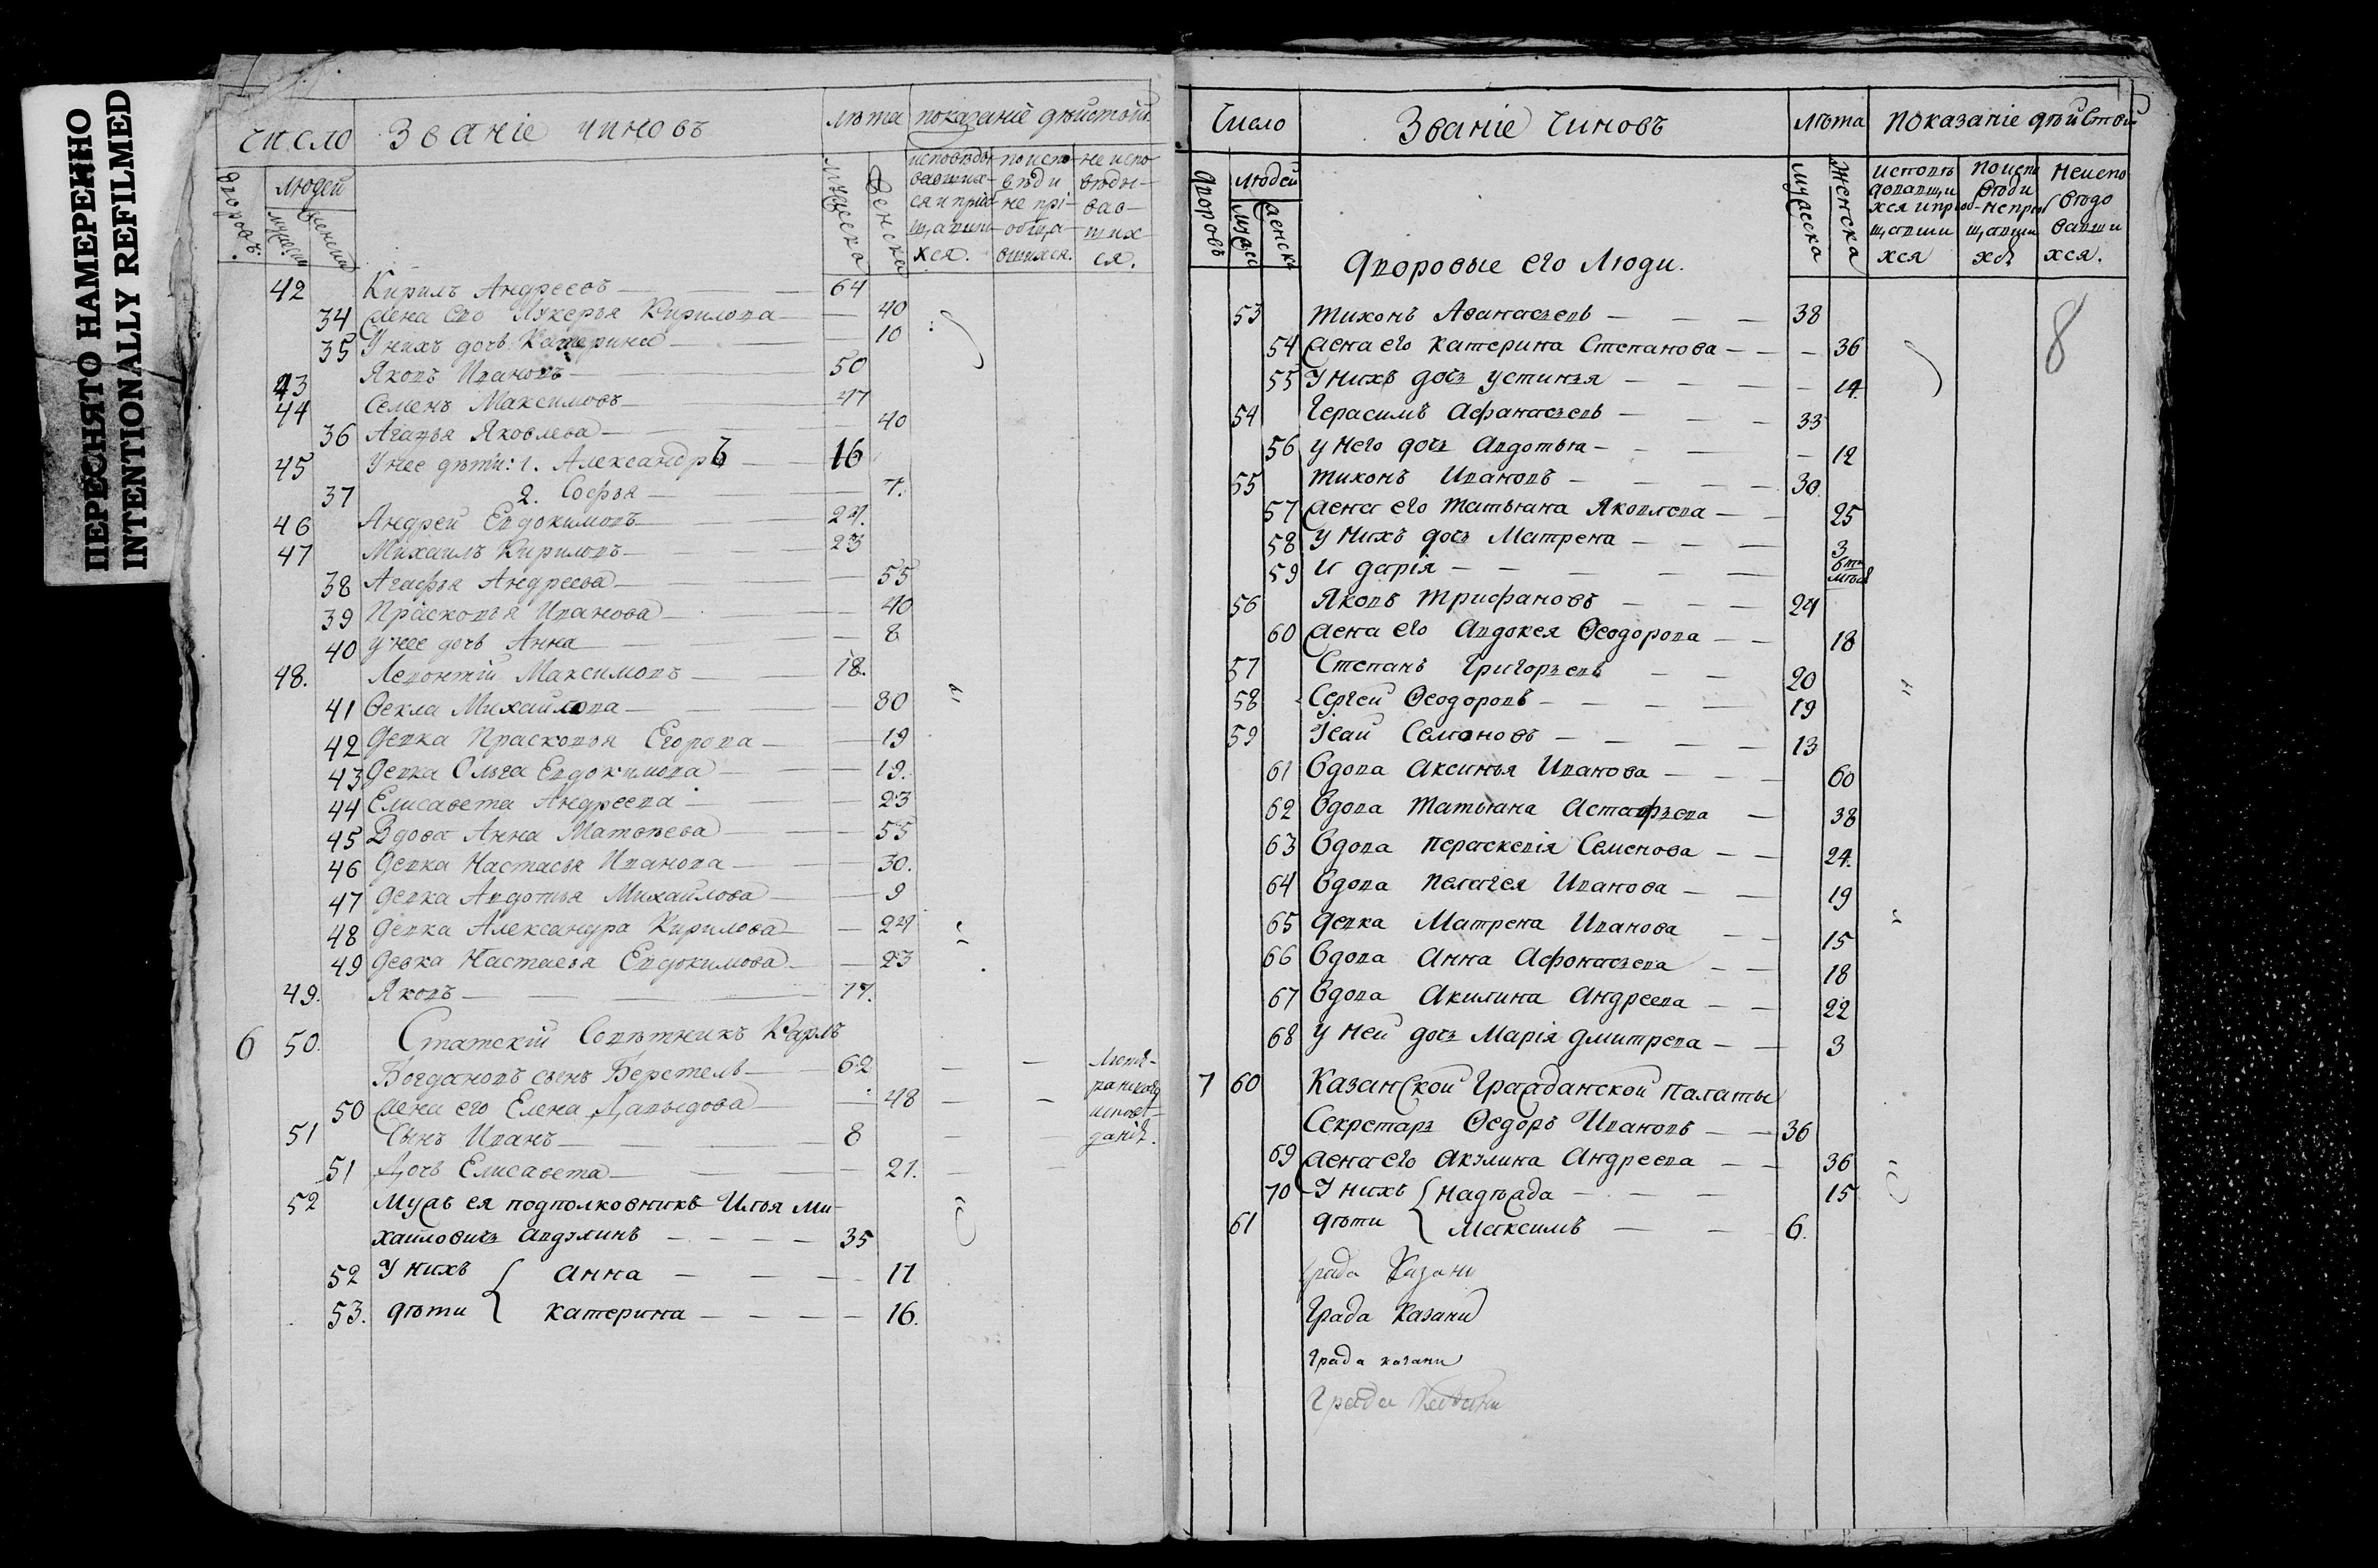 ПЕРЕСНЯТО НАМЕРЕННО
INTENTIONALLY REFILMED
число Званіе чиновъ лѣта показаніе дѣйствій
дворовъ людей мужска женска
исповѣды- по испо- не испо-
вавших- вѣди вѣды-
ся и пріо- не прі- вав-
щавши- обща- ших-
хся. вшихся. ся.
42 Кирилъ Андреевъ 64
34 жена его Лукерья Кирилова 40
35 У нихъ дочь Катерина 10
43 Яковъ Ивановъ 50
44 Семенъ Максимовъ 47
36 Агапья Яковлева 40
45 У нее дѣти: 1. Александръ 16
37 2. Софья 7.
46 Андрей Евдокимовъ 27.
47 Михаилъ Кириловъ 23
38 Агафья Андреева 55
39 Праскопья Иванова 40
40 у нее дочь Анна 8
48. Левонтій Максимовъ 18.
41 Ѳекла Михайлова 80
42 девка Праскопья Егорова 19
43 девка Ольга Евдокимова 19.
44 Елисавета Андреева 23
45 Вдова Анна Матвѣева 55
46 девка Настасья Иванова 30.
47 девка Авдотья Михайлова 9
48 девка Александра Кирилова 24
49 девка Настасья Евдокимова 23
49. Яковъ 17.
6 50. Статскій Совѣтникъ Карлъ
Богдановъ сынъ Беретель 62
50 жена его Елена Давыдова 48
51 Сынъ Иванъ 8
51 Дочь Елисавета 21.
52 Мужъ ея подполковникъ Илья Ми-
хайловичъ Авдулинъ 35
52 У нихъ Анна 17
53. дѣти катерина 16.
Число Званіе Чиновъ лѣта показаніе дѣйствій
дворовъ людей мужска женска
исповѣ по испо Неиспо
довавши вѣди вѣдо
хся и пріоб- не пріоб вавши
щавши щавши хся.
хся хся
дворовые его люди.
8
53 тихонъ Аѳанасьевъ 38
54 жена его катерина Степанова 36
55 У нихъ дочь устинья 14.
54 Герасимъ афанасьевъ 33
56 у него дочь авдотья 12
55 тихонъ Ивановъ 30.
57 жена его татьяна Яковлева 25
58 у нихъ дочь Матрена 3
59 и дарія
56 Яковъ трифановъ 24
60 жена его авдокея Ѳеодорова 18
57 Степанъ Григорьевъ 20
58 Сергей Ѳеодоровъ 19
59 Ісай Семоновъ 13
61 вдова аксинья Иванова 60
62 вдова татьяна астафьева 38
63 вдова пераскевія Семенова 24.
64 вдова пелагея Иванова 19
65 девка Матрена Иванова 15
66 вдова анна афонасьева 18
67 вдова акилина андреева 22
68 у ней дочь Марія дмитрева 3
7 60 Казанской Гражданской палаты
Секретарь Ѳедоръ Ивановъ 36
69 жена его акулина андреева 36
70 У нихъ надѣжда 15
61 дѣти Максимъ 6.
града Казани
Града Казани
града казани
Града Казани